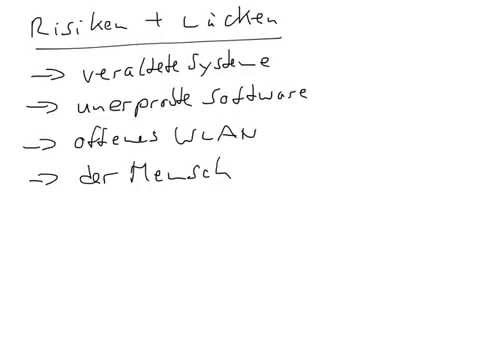 Risiken + Lücken
→ veraltete Systeme
→ unerprobte Software
→ offenes WLAN
→ der Mensch